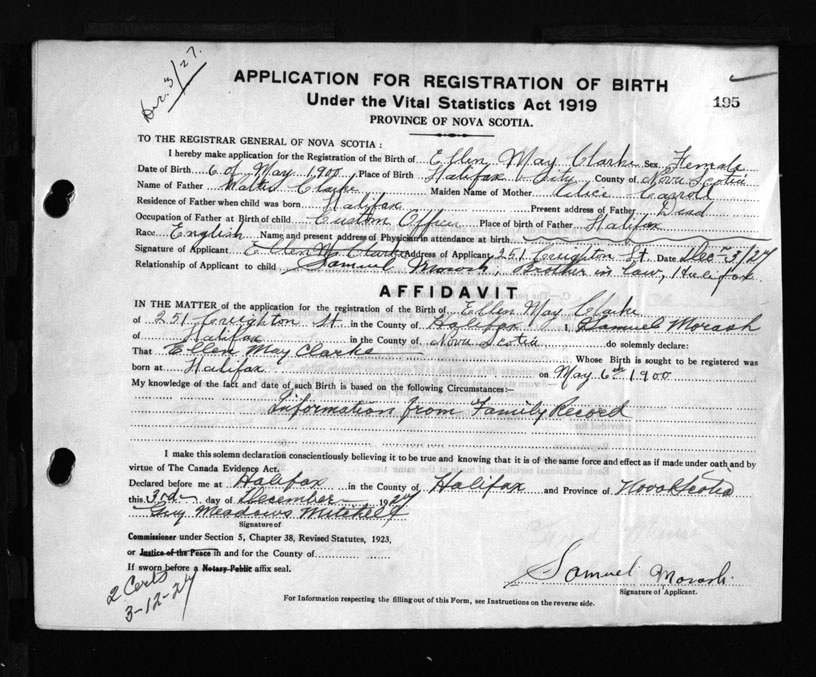 Dec. 3/27.
APPLICATION FOR REGISTRATION OF BIRTH
Under the Vital Statistics Act 1919
195
PROVINCE OF NOVA SCOTIA.
TO THE REGISTRAR GENERAL OF NOVA SCOTIA :
I hereby make application for the Registration of the Birth of Ellen May Clarke Sex Female
Date of Birth 6 of May 1900 Place of Birth Halifax City County of Nova Scotia
Name of Father Clarke Maiden Name of Mother Alice Carroll
Residence of Father when child was born Halifax Present address of Father Dead
Occupation of Father at Birth of child Custom Officer Place of birth of Father Halifax
Race English Name and present address of Physician in attendance at birth
Signature of Applicant Ellen M Clarke Address of Applicant 251 Creighton St. Date Dec 3/27
Relationship of Applicant to child Samuel Morash, Brother in law, Halifax
AFFIDAVIT
IN THE MATTER of the application for the registration of the Birth of Ellen May Clarke
of 251 Creighton St in the County of Halifax I, Samuel Morash
of Halifax in the County of Nova Scotia do solemnly declare:
That Ellen May Clarke Whose Birth is sought to be registered was
born at Halifax on May 6th 1900
My knowledge of the fact and date of such Birth is based on the following Circumstances:—
Information from Family Record
I make this solemn declaration conscientiously believing it to be true and knowing that it is of the same force and effect as if made under oath and by
virtue of The Canada Evidence Act.
Declared before me at Halifax in the County of Halifax and Province of Nova Scotia
this 3rd day of December 1927
Guy Meadows Mitchell
Signature of
Commissioner under Section 5, Chapter 38, Revised Statutes, 1923,
or Justice of the Peace in and for the County of
If sworn before a Notary Public affix seal.
2 Certs
3-12-27
Samuel Morash.
Signature of Applicant.
For Information respecting the filling out of this Form, see Instructions on the reverse side.